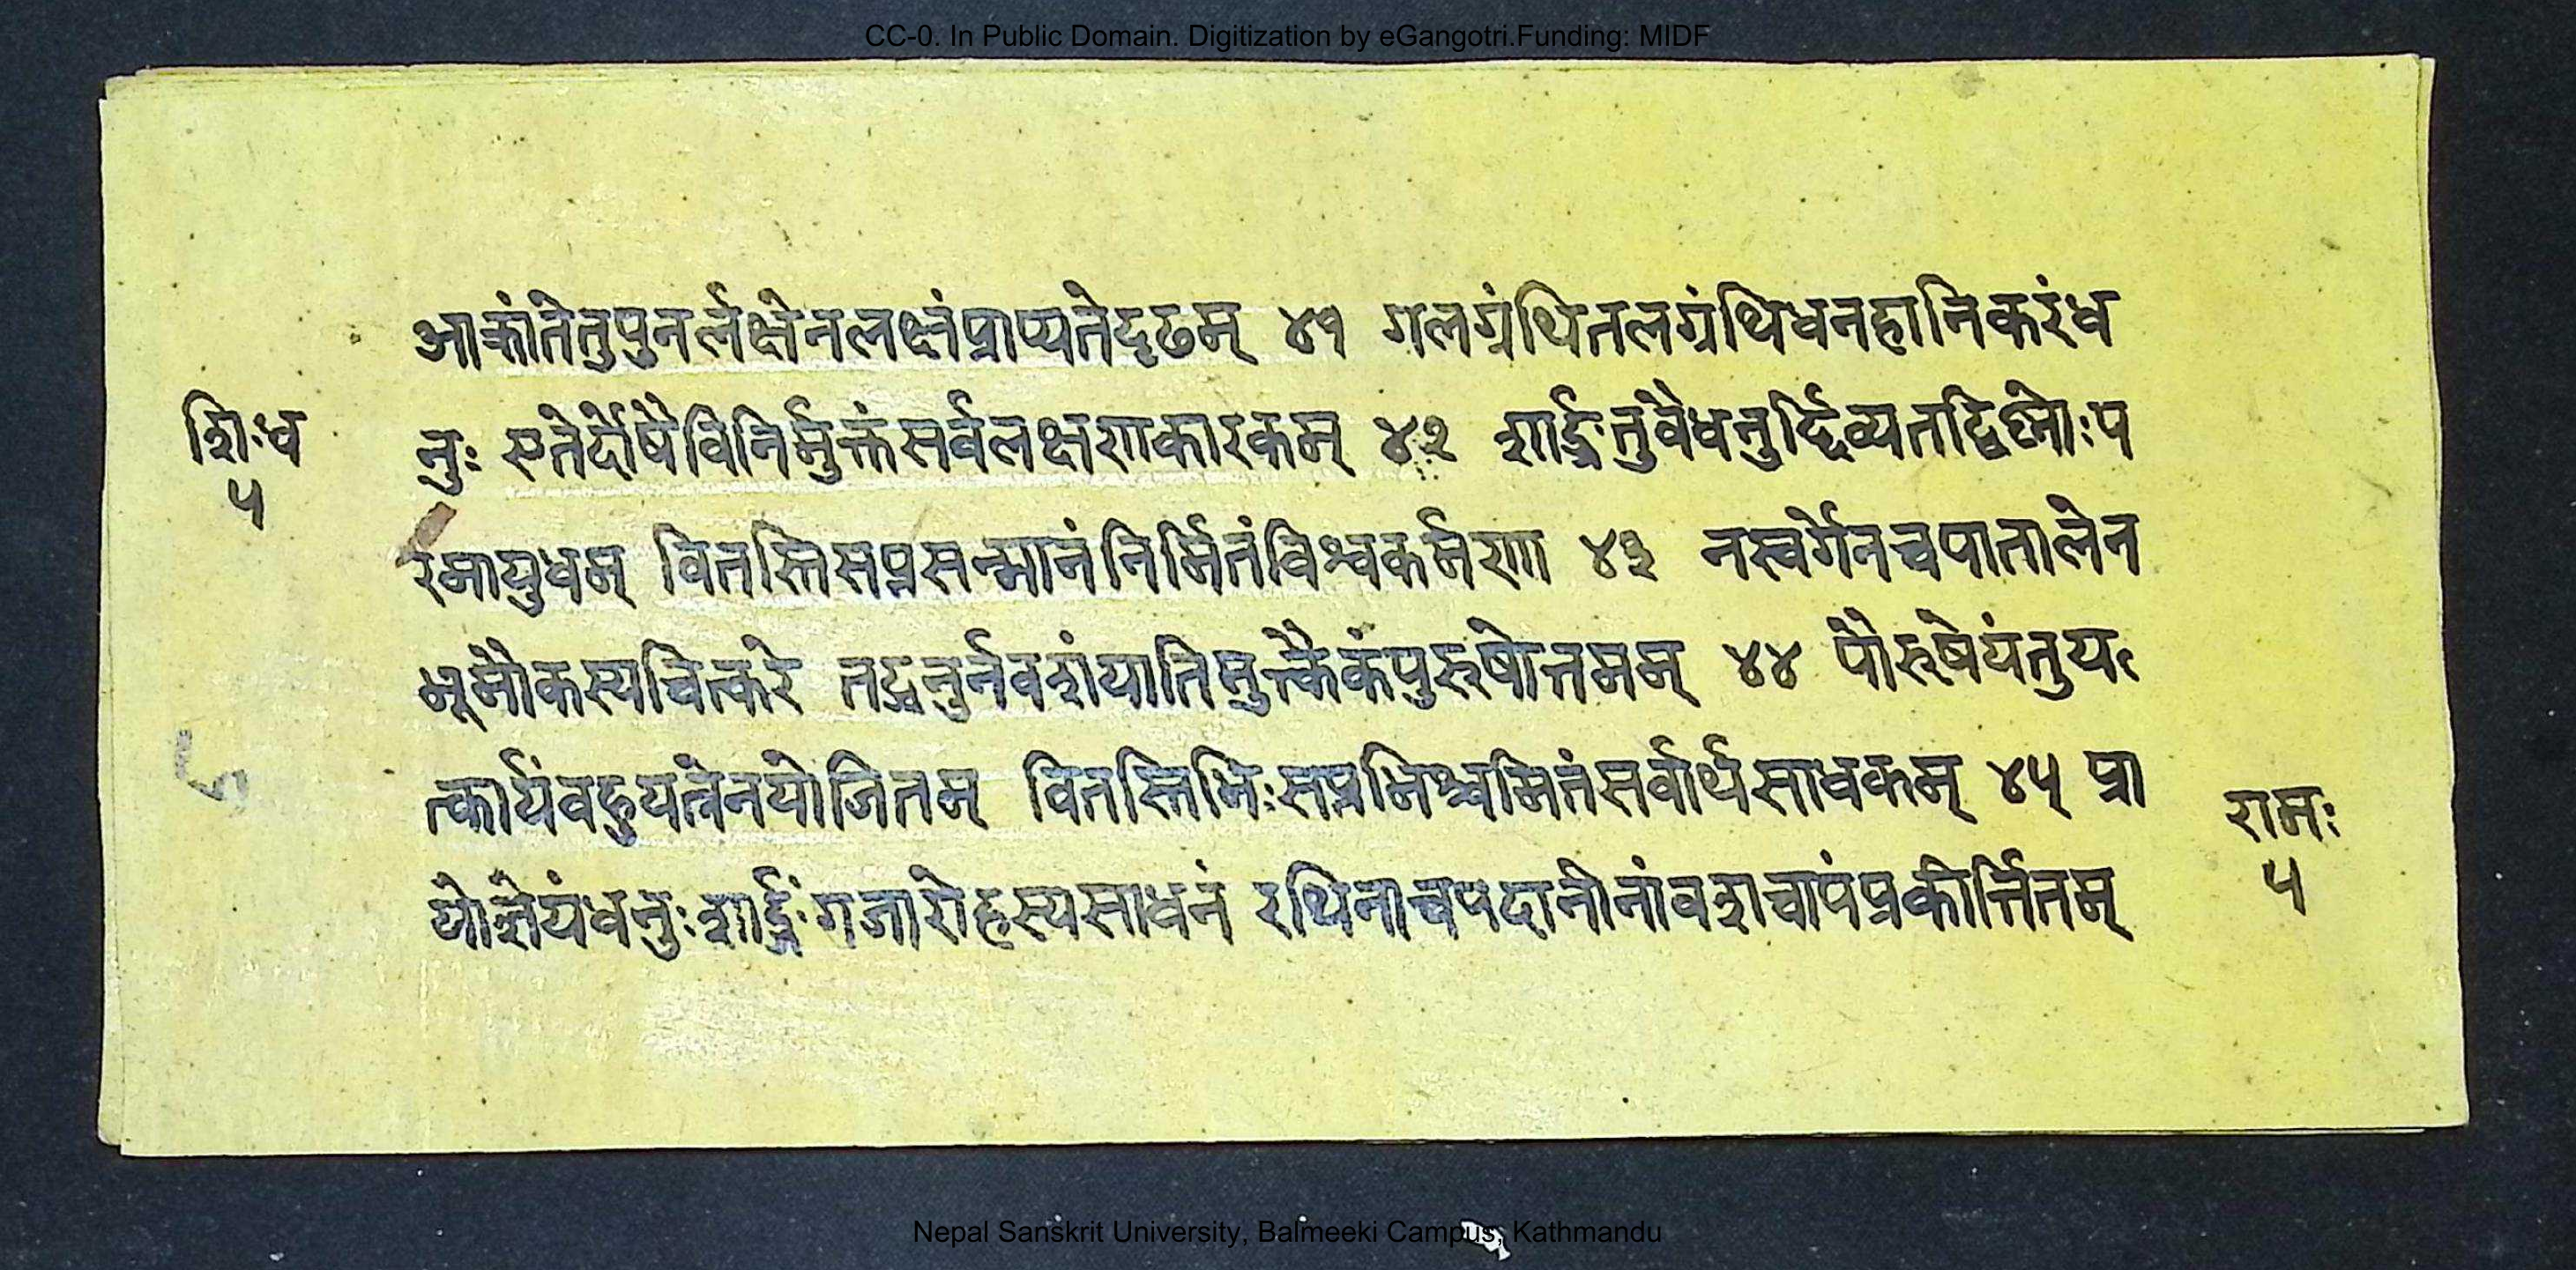 CC-0. In Public Domain. Digitization by eGangotri.Funding: MIDF
आक्रांतेतुपुनर्लक्षेनलक्ष्नंप्राप्यतेदृढम् ४१ गलग्रंथितलग्रंथिधनहानिकरंध
शि॰ध
५
नुः एतेर्दोषैविनिर्मुक्तंसर्वलक्षणकारकम् ४२ शार्ङ्गंतुवैधनुर्द्दिव्यतद्विष्णोःप
रमायुधम् वितस्तिसप्तसन्मानंनिर्मितंविश्वकर्मणा ४३ नस्वर्गेनचपातालेन
भूमौकस्यचित्करे तद्धनुर्नवशंयातिमुक्त्कैकंपुरुषोत्तमम् ४४ पौरुषेयंतुय
त्कार्यंवहुयत्नेनयोजितम् वितस्तिभिःसप्तभिश्चमितंसर्वार्थसाधकम् ४५ प्रा
योज्ञेयंधनुःशार्ङ्गंगजारोहस्यसाधनं रथिनाचपदातीनांवशचापंप्रकीर्त्तितम्
रामः
५
Nepal Sanskrit University, Balmeeki Campus, Kathmandu